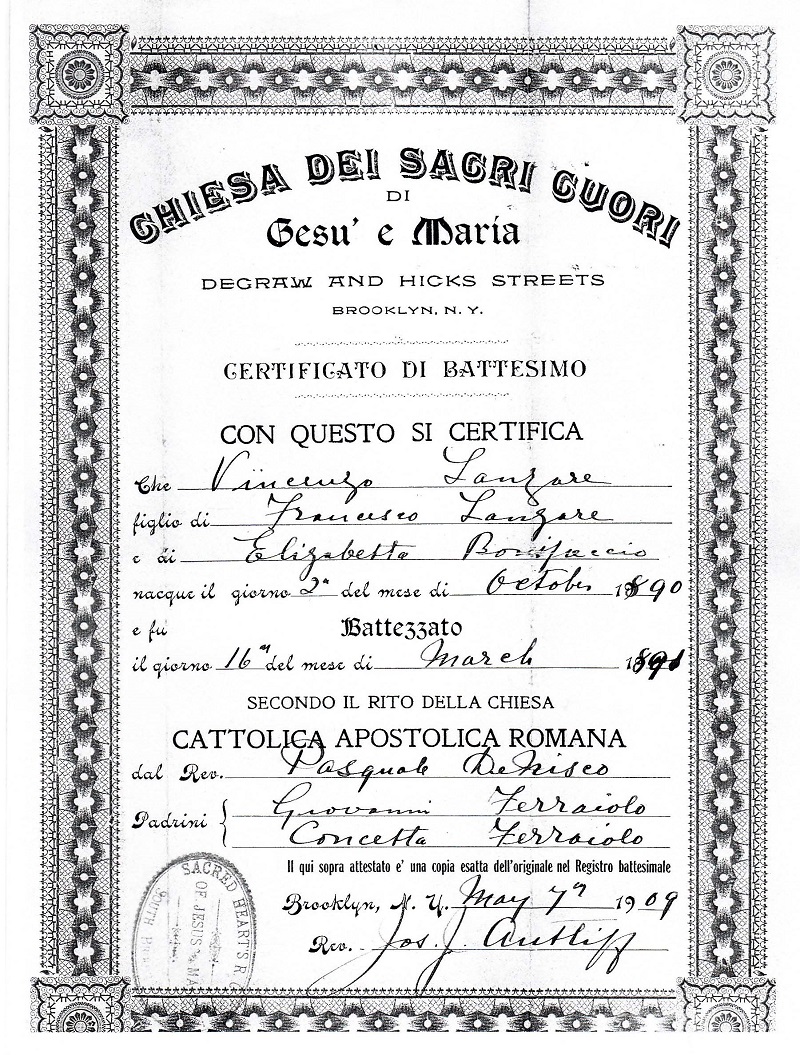 CHIESA DEI SACRI CUORI
DI
Gesu' e Maria
DEGRAW AND HICKS STREETS
BROOKLYN, N. Y.
CERTIFICATO DI BATTESIMO
CON QUESTO SI CERTIFICA
Che Vincenzo Lanzare
figlio di Francesco Lanzare
e di Elizabetta Bonifaccio
nacque il giorno 2ª del mese di October 1890
e fu Battezzato
il giorno 16ª del mese di March 1891
SECONDO IL RITO DELLA CHIESA
CATTOLICA APOSTOLICA ROMANA
dal Rev. Pasquale DeNisco
Padrini { Giovanni Ferraiolo
Concetta Ferraiolo
Il qui sopra attestato e' una copia esatta dell'originale nel Registro battesimale
Brooklyn, N. Y. May 7ª 1909
Rev. Jos. J. Cutliff
SACRED HEARTS R.
OF JESUS & MA
SOUTH